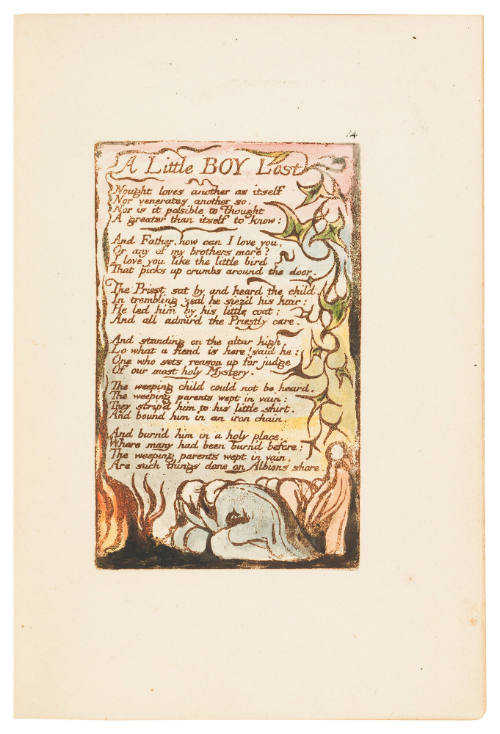 14
A Little BOY Lost
Nought loves another as itself
Nor venerates another so.
Nor is it possible to Thought
A greater than itself to know:
And Father, how can I love you,
Or any of my brothers more?
I love you like the little bird
That picks up crumbs around the door.
The Priest sat by and heard the child.
In trembling zeal he siez'd his hair:
He led him by his little coat:
And all admir'd the Priestly care.
And standing on the altar high,
Lo what a fiend is here! said he:
One who sets reason up for judge
Of our most holy Mystery.
The weeping child could not be heard.
The weeping parents wept in vain:
They strip'd him to his little shirt.
And bound him in an iron chain.
And burn'd him in a holy place,
Where many had been burn'd before:
The weeping parents wept in vain.
Are such things done on Albions shore.